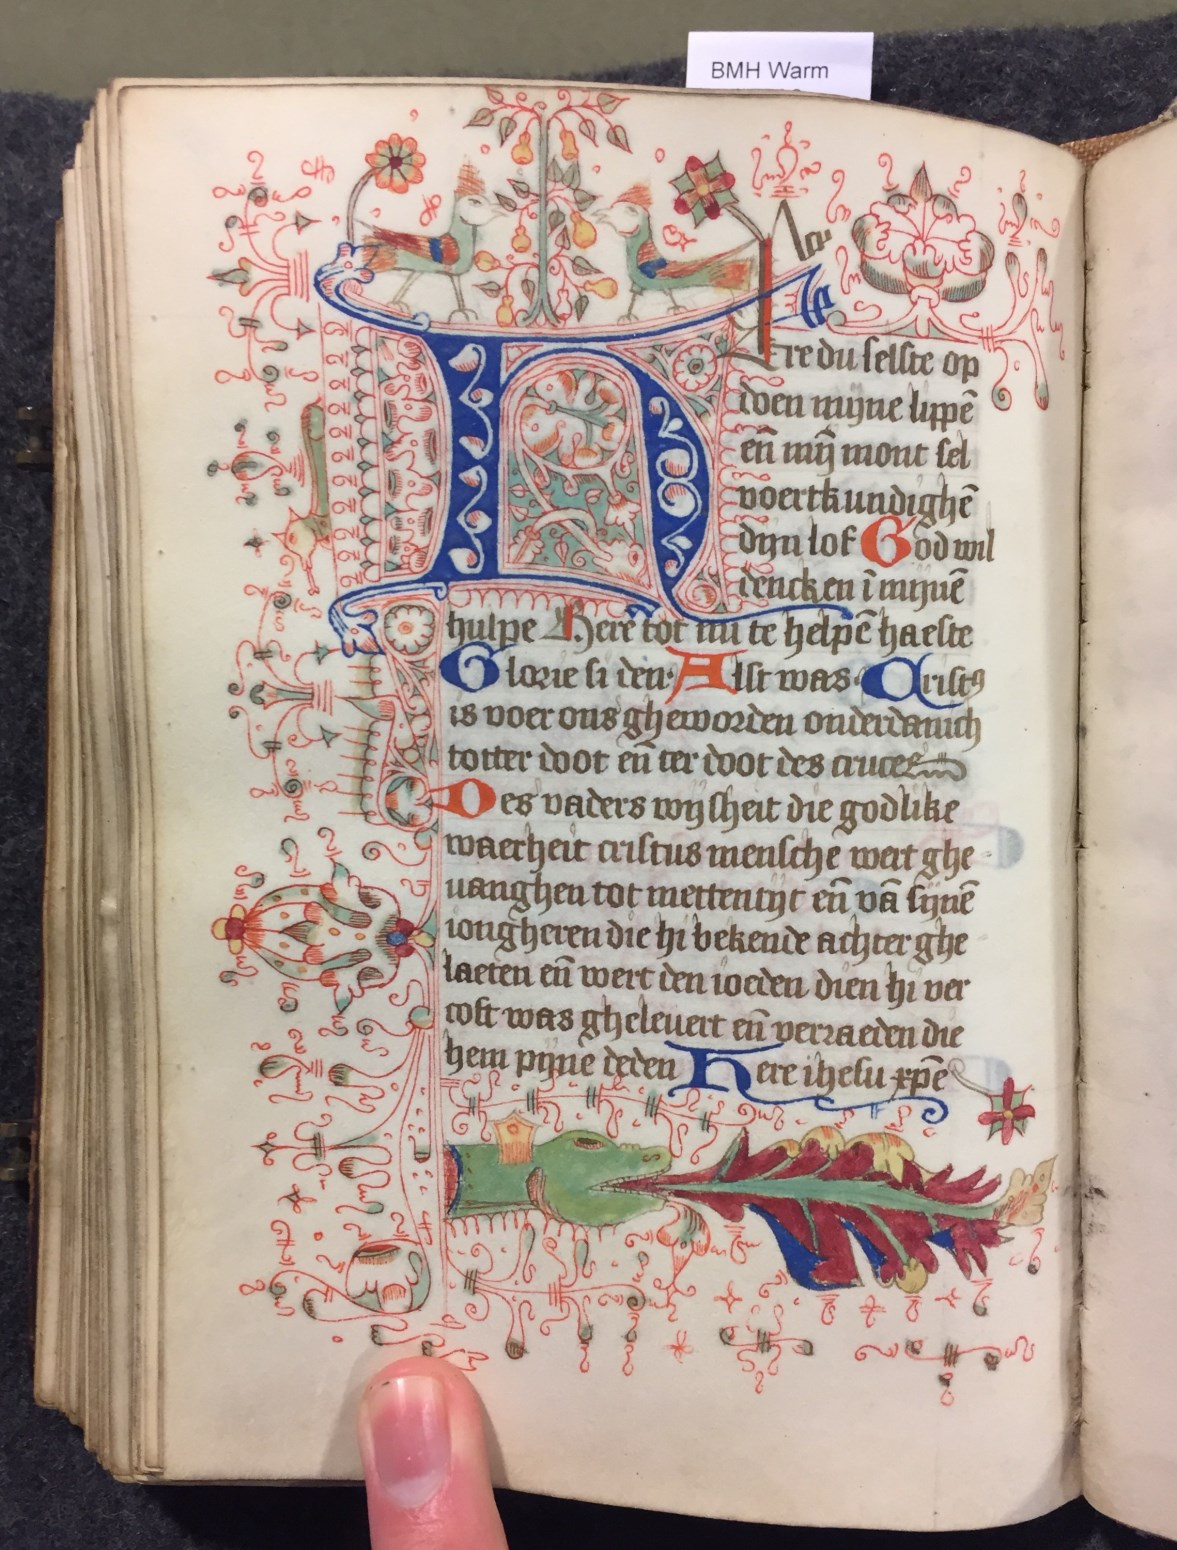 BMH Warm
Here du selste op
doen mijne lippē
en̄ mij̄ mont sel
voertkundighē
dijn lof God wil
dencken ī mijnē
hulpe Here tot mi te helpē haeste
Glorie si den Alst was Crist⁹
is voer ons gheworden onderdanich
totter doot en̄ ter doot des cruces
Des vaders wijsheit die godlike
waerheit cristus mensche wert ghe
uanghen tot mettentijt en̄ vā sijnē
iongheren die hi bekende achter ghe
laeten en̄ wert den ioeden dien hi ver
coft was gheleuert en̄ verraeden die
hem pijne deden Here ihesu xpē